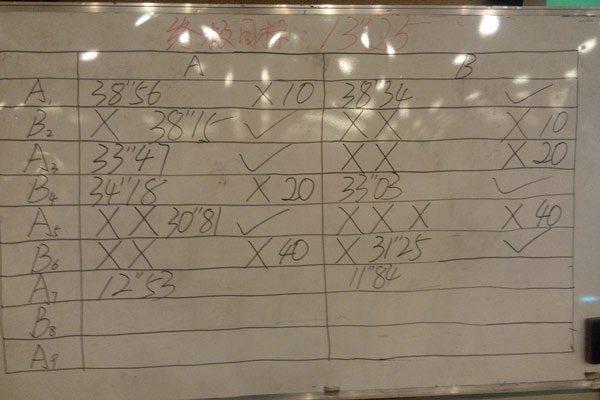 终极目标: 13"25
A B
A1 38"56 X 10 38"34 ✓
B2 X 38"15 ✓ X X X 10
A3 33"47 ✓ X X X 20
B4 34"18 X 20 33"03 ✓
A5 X X 30"81 ✓ X X X X 40
B6 X X X 40 X 31"25 ✓
A7 12"53 11"84
B8
A9